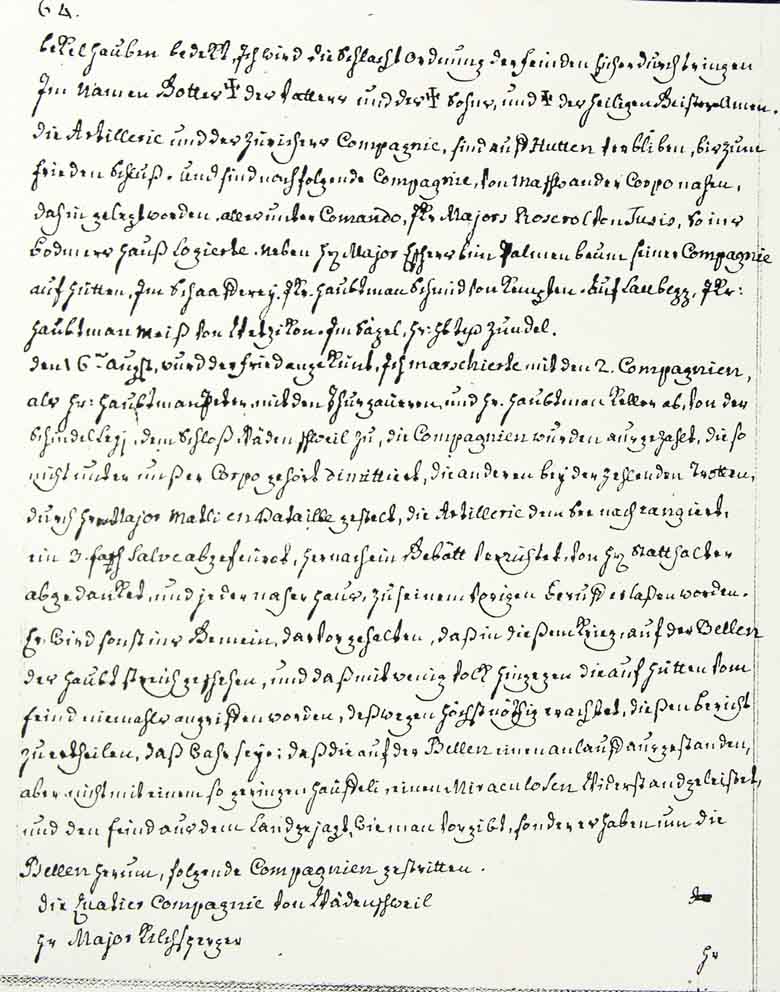 64.
bekelhauben bedekt, Ich wird die Schlacht Ordnung der feinden sicher durchtringen
Im Namen Gottes ☩ der Vatters und der ☩ Sohns, und ☩ der Heiligen Geistes Amen.
die Artillerie und der Züricher Compagnie, sind auf Hütten verbliben, bis zum
frieden Schluß. und sind nachfolgende Compagnie, von
dahin gelegt worden. alles unter Comando, Jkr Majors Roscrol von Turis, So ins
Bodmers Hauß Logierte. neben Hr Major Eschers beim Palmen baum seiner Compagnie
auf Hütten, Im Schaafferey, Jkr. Haubtman Schmid von Kempten. Auf Lattbegg, Jkr:
Haubtman Meiß von Wetzikon. Im Sägel, Hr: Hbtm Zundel.
den 16ten Augst, wurd der fried angekünt, Ich marschierte mit den 2. Compagnien,
als Hr: Haubtman Peter mit den Thurgaueren, und Hr. Haubtman Keller ab, von der
Schindellegj, dem Schloß Wädenschweil zu, die Compagnien wurden ausgezahlt, die so
nicht unter unser Corpo gehört dimittiert, die anderen bey der Zehlenden Trotten,
durch Herr Major Matli en Bataille gestelt, die Artillerie dem See nach rangiert,
ein 3.fach Salve abgefeüret, hernach ein Gebätt verrichtet, von Hr Statthalter
abgedanket, und jeder naher Haus, zu seinem vorigen beruff erlaßen worden.
Es Wird sonst ins Gemein, darvor gehalten, daß in dießem Krieg, auf der Bellen
der Haubt streich geschehen, und daß mit wenig volk hingegen die auf Hütten vom
feind niemahls angriffen worden, deßwegen höchst nöthig erachtet, dießen bericht
zu ertheilen, daß Wahr seye: daß die auf der Bellen einen anlauff ausgestanden,
aber nicht mit einem so geringen häuffeli, einen Miraculosen Widerstand geleistet,
und den feind aus dem Land gejagt, Wie man vorgibt, sonder es haben um die
Bellen herum, folgende Compagnien gestritten.
die Quatier Compagnie von Wädenschweil
Hr Major Kilchsperger
Hr